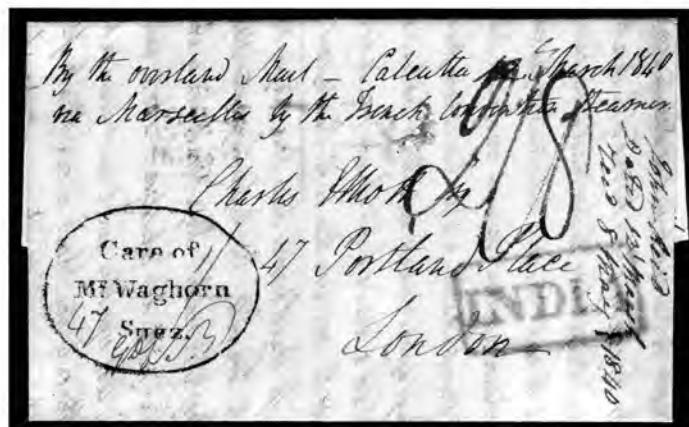 By the overland Mail – Calcutta March 1840
via Marseilles by the French Steamer
Charles
47 Portland Place
London
Care of
Mr Waghorn
Suez.
47
INDIA
John
Recd 8 May 1840